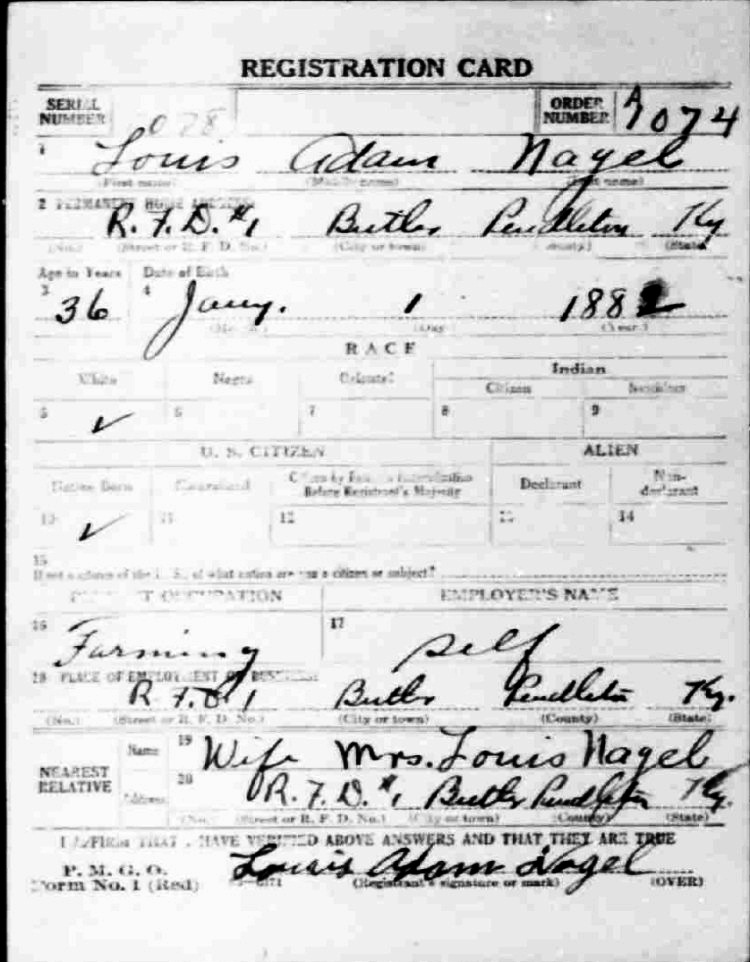 REGISTRATION CARD
SERIAL NUMBER 078 ORDER NUMBER A1074
1 Louis Adam Nagel
(First name) (Middle name) (Last name)
2 PERMANENT HOME ADDRESS
R. F. D. #1 Butler Pendleton Ky
(No.) (Street or R. F. D. No.) (City or town) (County) (State)
Age in Years Date of Birth
3 36 4 Jany. 1 1882
(Month) (Day) (Year)
RACE
White Negro Oriental Indian
Citizen Noncitizen
5 ✓ 6 7 8 9
U. S. CITIZEN ALIEN
Native Born Naturalized Citizen by Father's Naturalization Before Registrant's Majority Declarant Non-declarant
10 ✓ 11 12 13 14
15
If not a citizen of the U. S., of what nation are you a citizen or subject?
PRESENT OCCUPATION EMPLOYER'S NAME
16 Farming 17 self
18 PLACE OF EMPLOYMENT OR BUSINESS
R. F. D 1 Butler Pendleton Ky.
(No.) (Street or R. F. D. No.) (City or town) (County) (State)
NEAREST RELATIVE
Name 19 Wife Mrs. Louis Nagel
Address 20 R. F. D. #1 Butler Pendleton Ky.
(No.) (Street or R. F. D. No.) (City or town) (County) (State)
I AFFIRM THAT I HAVE VERIFIED ABOVE ANSWERS AND THAT THEY ARE TRUE
P. M. G. O.
Form No. 1 (Red) Louis Adam Nagel
(Registrant's signature or mark) (OVER)